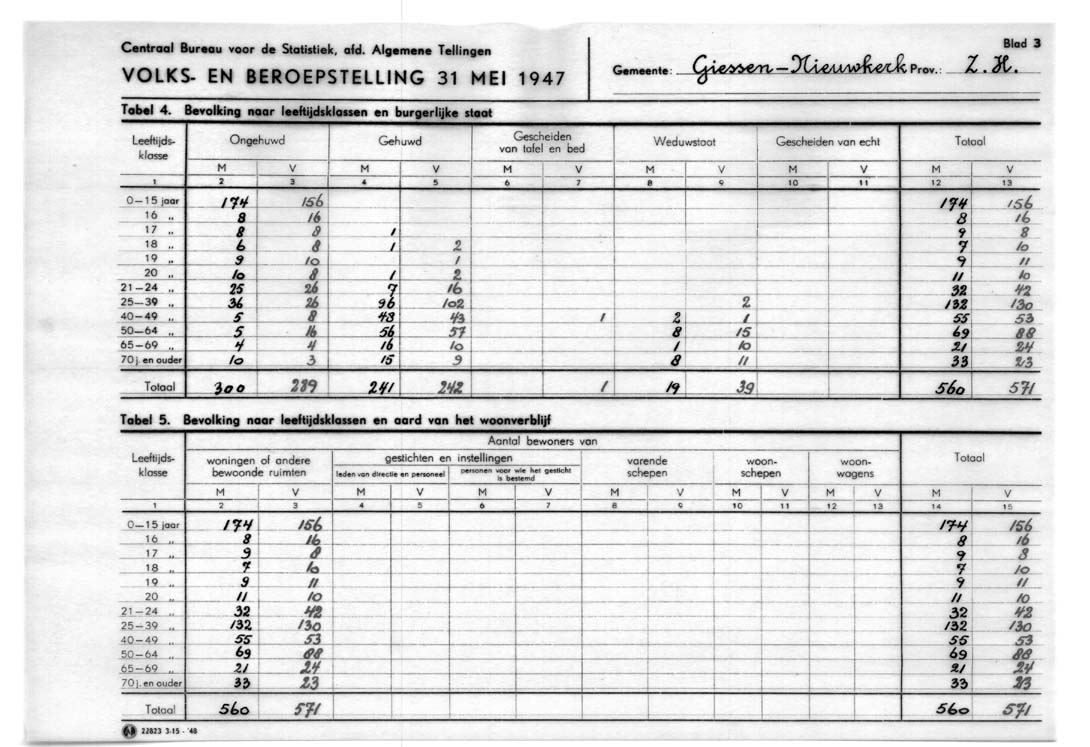 Centraal Bureau voor de Statistiek, afd. Algemene Tellingen
VOLKS- EN BEROEPSTELLING 31 MEI 1947
Blad 3
Gemeente: Giessen-Nieuwkerk Prov.: Z.H.
Tabel 4. Bevolking naar leeftijdsklassen en burgerlijke staat
Leeftijds-klasse Ongehuwd Gehuwd Gescheiden van tafel en bed Weduwstaat Gescheiden van echt Totaal
M V M V M V M V M V M V
1 2 3 4 5 6 7 8 9 10 11 12 13
0—15 jaar 174 156 174 156
16 „ 8 16 8 16
17 „ 8 8 1 9 8
18 „ 6 8 1 2 7 10
19 „ 9 10 1 9 11
20 „ 10 8 1 2 11 10
21—24 „ 25 26 7 16 32 42
25—39 „ 36 26 96 102 2 132 130
40—49 „ 5 8 48 43 1 2 1 55 53
50—64 „ 5 16 56 57 8 15 69 88
65—69 „ 4 4 16 10 1 10 21 24
70 j. en ouder 10 3 15 9 8 11 33 23
Totaal 300 289 241 242 1 19 39 560 571
Tabel 5. Bevolking naar leeftijdsklassen en aard van het woonverblijf
Aantal bewoners van
Leeftijds-klasse woningen of andere bewoonde ruimten gestichten en instellingen varende schepen woon-schepen woon-wagens Totaal
leden van directie en personeel personen voor wie het gesticht is bestemd
M V M V M V M V M V M V M V
1 2 3 4 5 6 7 8 9 10 11 12 13 14 15
0—15 jaar 174 156 174 156
16 „ 8 16 8 16
17 „ 9 8 9 8
18 „ 7 10 7 10
19 „ 9 11 9 11
20 „ 11 10 11 10
21—24 „ 32 42 32 42
25—39 „ 132 130 132 130
40—49 „ 55 53 55 53
50—64 „ 69 88 69 88
65—69 „ 21 24 21 24
70 j. en ouder 33 23 33 23
Totaal 560 571 560 571
22823 3-15 - '48